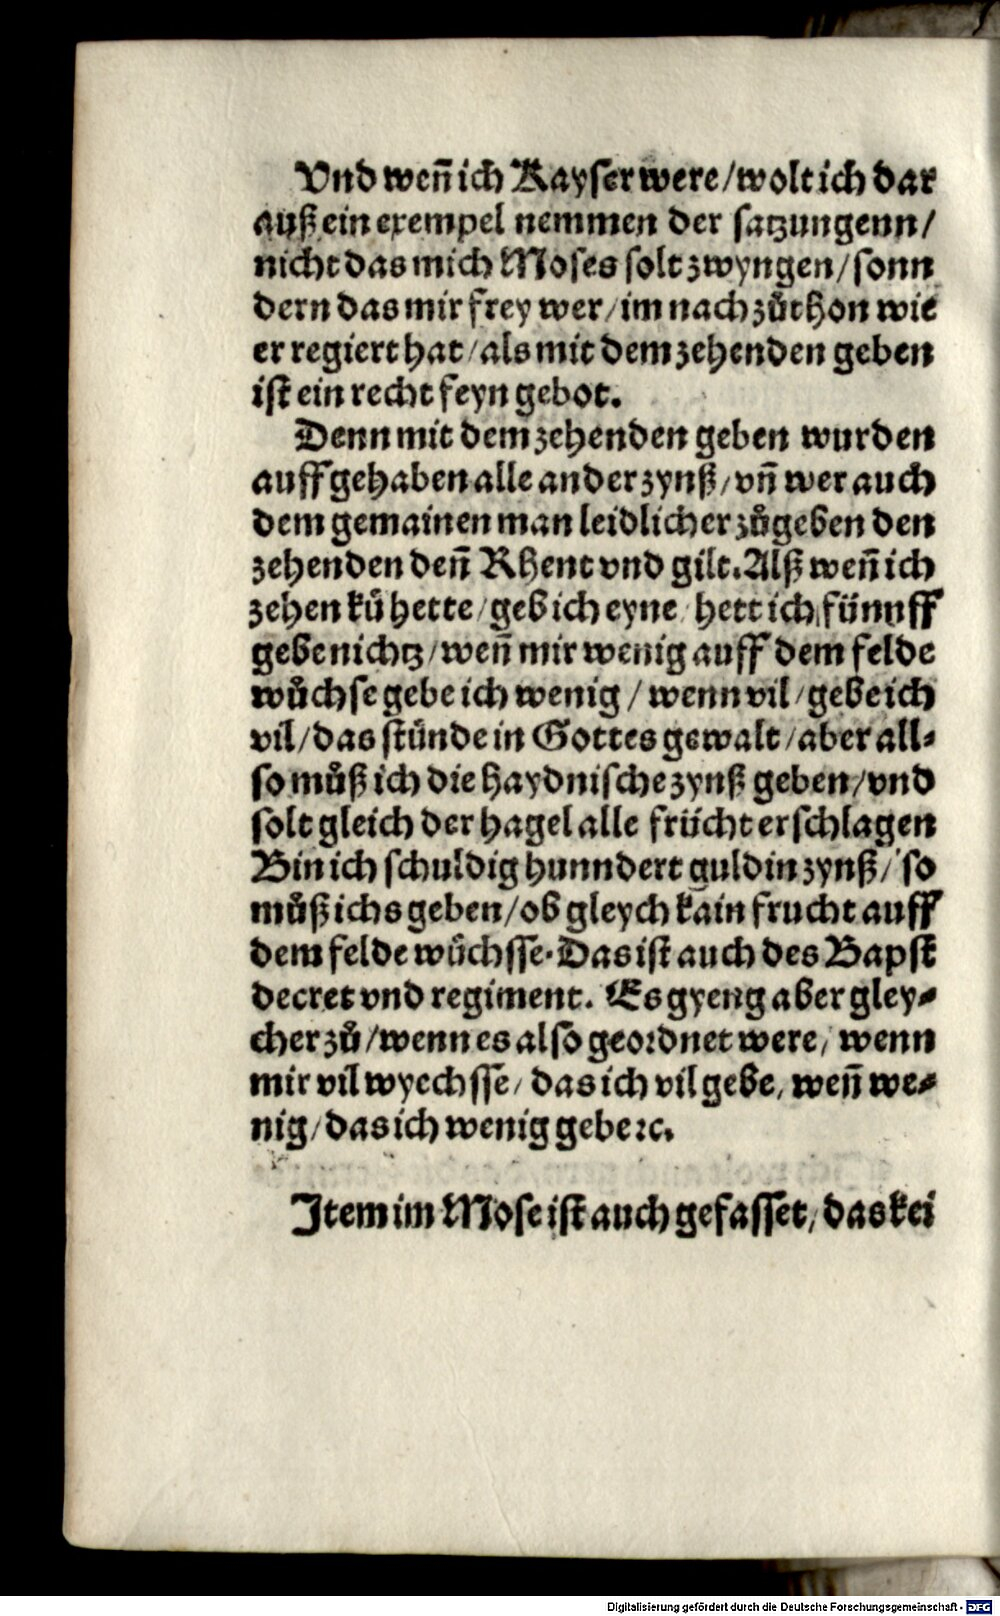 Vnd weñ ich Kayser were/wolt ich dar
auß ein exempel nemmen der satzungenn/
nicht das mich Moses solt zwyngen/sonn
dern das mir frey wer/im nach zůthon wie
er regiert hat/als mit dem zehenden geben
ist ein recht feyn gebot.
Denn mit dem zehenden geben wurden
auffgehaben alle ander zynß/vñ wer auch
dem gemainen man leidlicher zůgeben den
zehenden deñ Rhent vnd gilt. Alß weñ ich
zehen ků hette/geb ich eyne/hett ich fünnff
gebe nichtz/weñ mir wenig auff dem felde
wůchse gebe ich wenig/wenn vil/gebe ich
vil/das stünde in Gottes gewalt/aber all-
so můß ich die haydnische zynß geben/vnd
solt gleich der hagel alle frücht erschlagen
Bin ich schuldig hunndert guldin zynß/so
můß ichs geben/ob gleych kain frucht auff
dem felde wůchsse. Das ist auch des Bapst
decret vnd regiment. Es gyeng aber gley-
cher zů/wenn es also geordnet were/wenn
mir vil wyechsse/das ich vil gebe/weñ we-
nig/das ich wenig gebe ꝛc.
Item im Mose ist auch gefasset/das kei
Digitalisierung gefördert durch die Deutsche Forschungsgemeinschaft - DFG